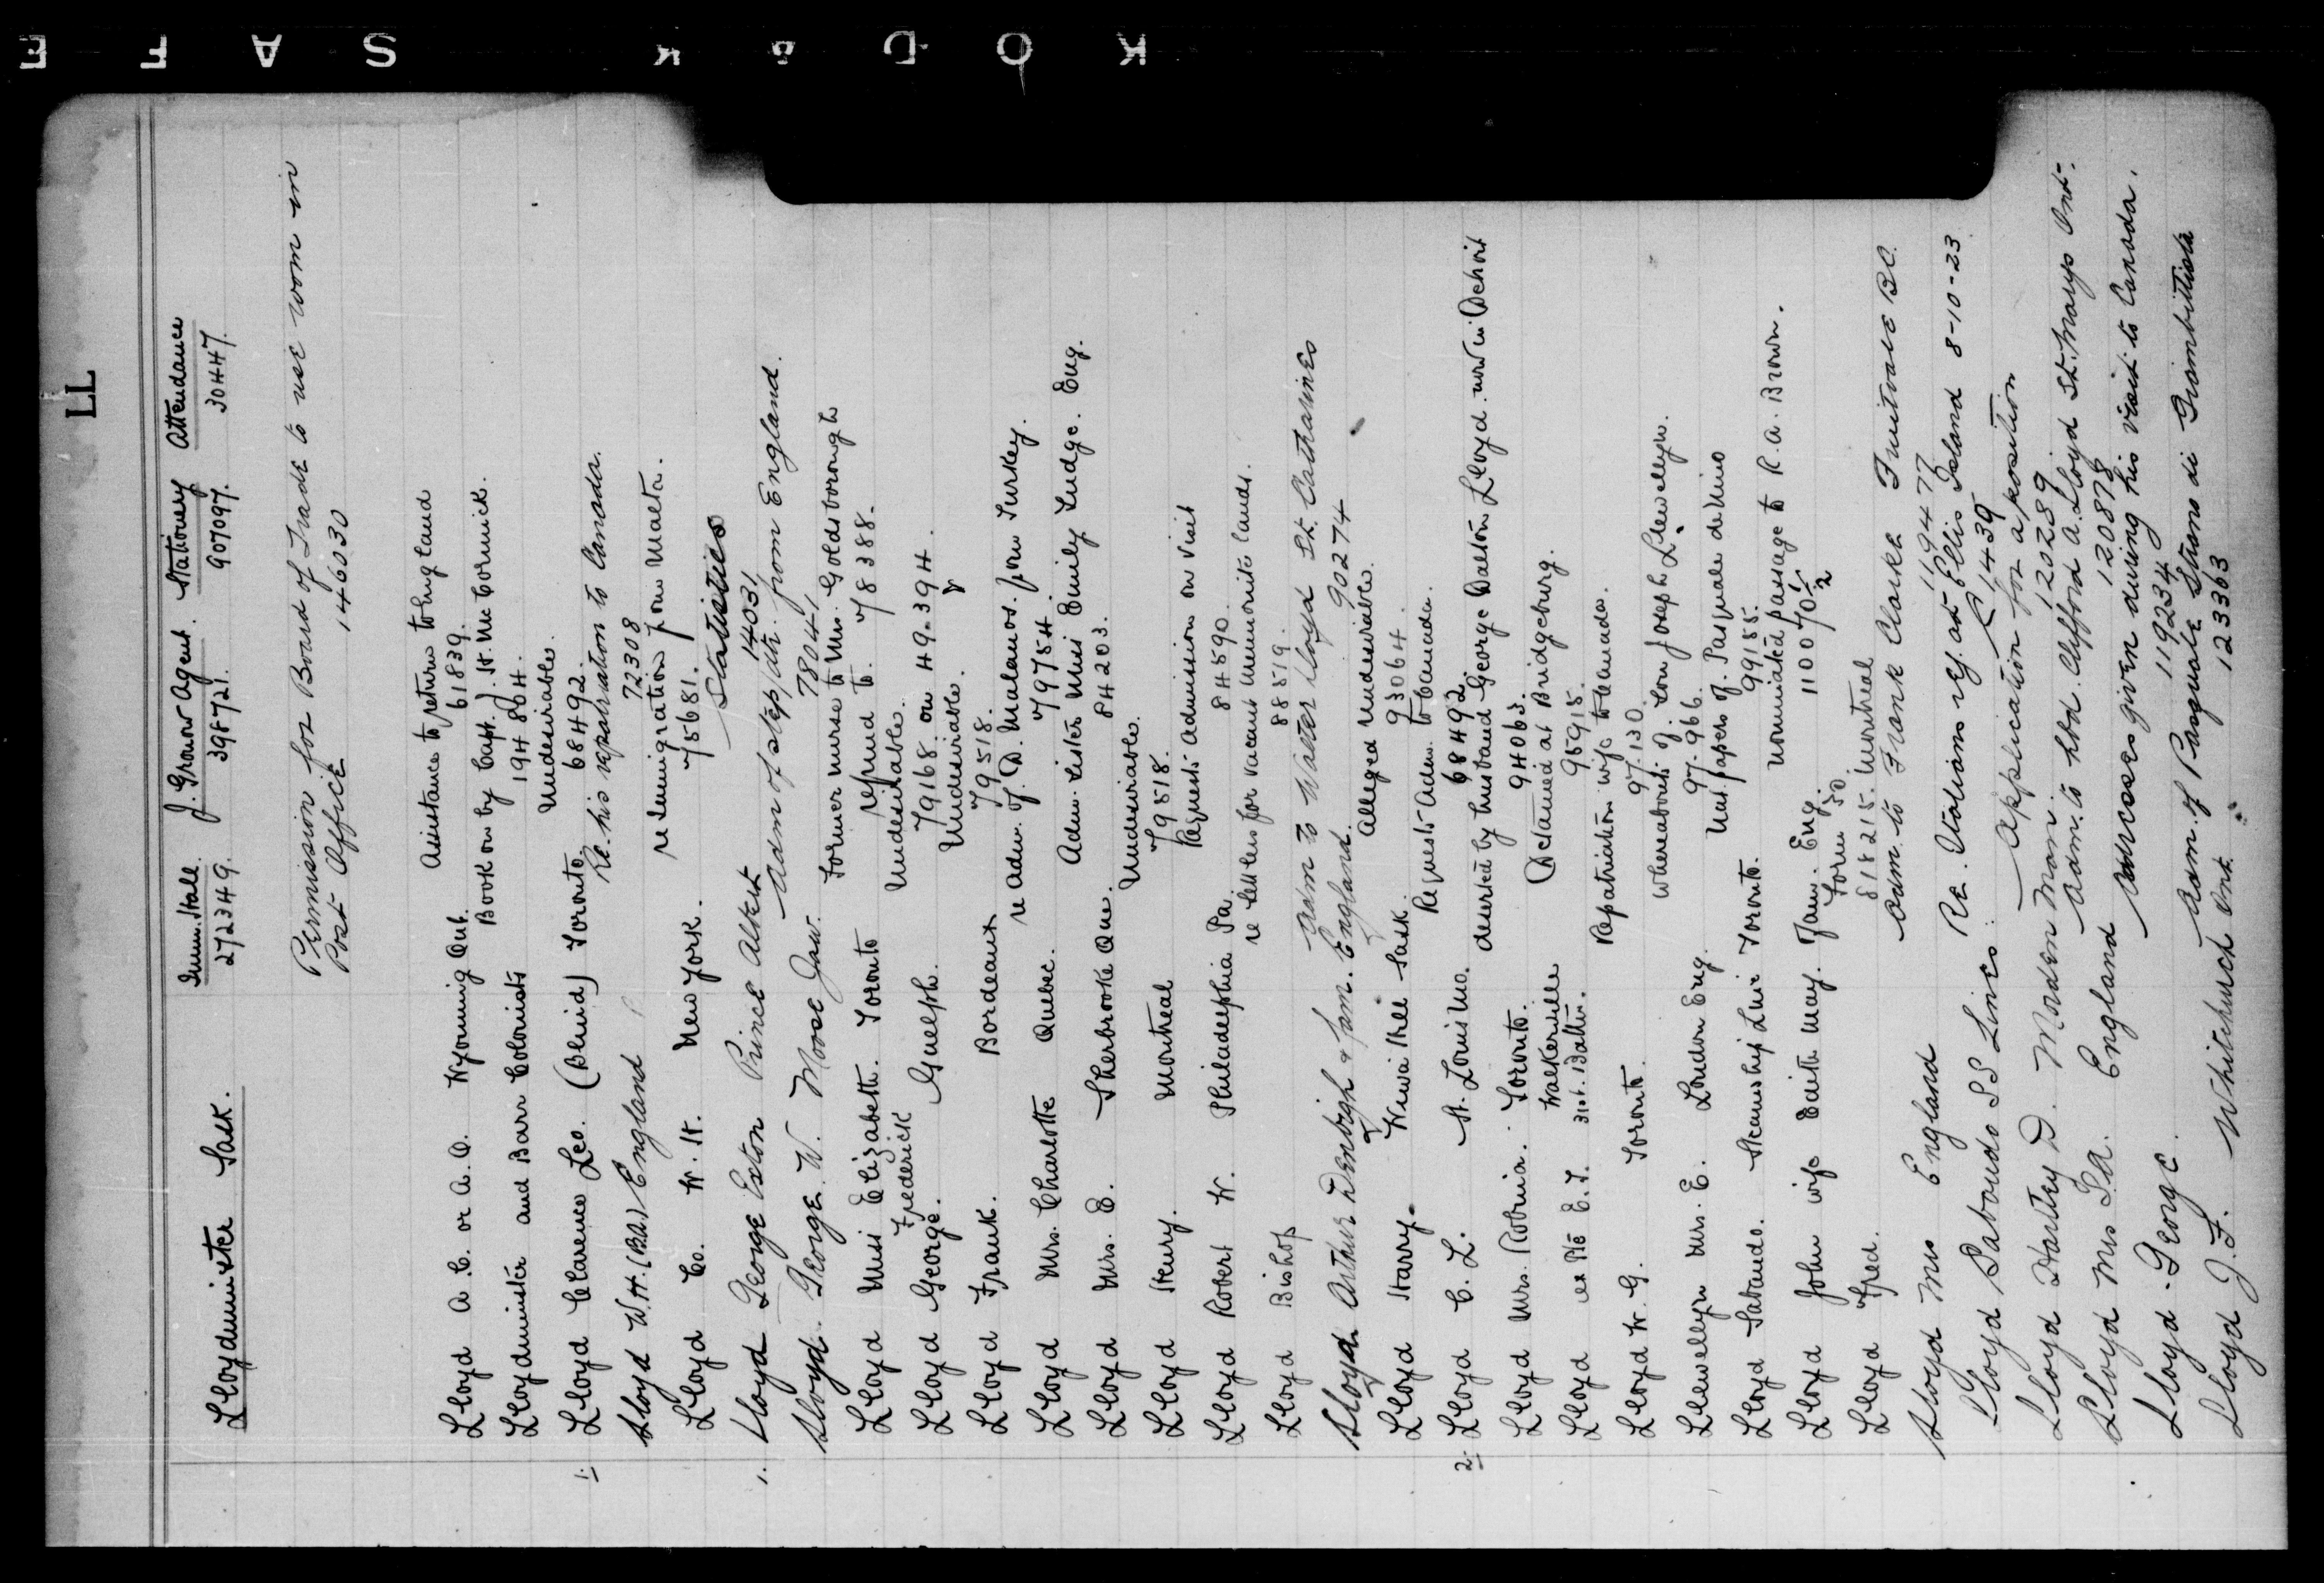 KODAK SAFE
LL
Lloydminster Sask. Imm. Hall. J. Gronow Agent. Stationery Attendance
272349. 398721. 907097. 30447.
Permission for Board of Trade to use room in
Post Office 146030
Lloyd A.C. or A.O. Wyoming Ont. Assistance to return to England
61839.
Lloydminster and Barr Colonists Book on by Capt. J. H. McCormick.
194804.
1. Lloyd Clarence Leo. (Blind) Toronto Undesirable.
68492.
Lloyd W.H. (B.A.) England Re. his repatriation to Canada.
72308
Lloyd Co. W. H. New York. re Immigration from Malta.
75681.
1. Lloyd George Exton Prince Albert Statistics
14031
Lloyd. George. W. Moose Jaw. Adm of step/dtr. from England.
78041
Lloyd Miss Elizabeth. Toronto Former nurse to Mrs. Goldsborough
refund to. 78388.
Lloyd George. Frederick Guelph. Undesirable.
79168. on 49394.
Lloyd Frank. Bordeaux Undesirable.
79518.
Lloyd Mrs. Charlotte Quebec. re Adm. of. D. Malanos. from Turkey.
79754.
Lloyd Mrs. E. Sherbrooke Que. Adm. Sister Miss Emily Judge. Eng.
84203.
Lloyd Henry. Montreal Undesirable.
79518.
Lloyd Robert W. Philadelphia Pa. Requests Admission on visit
84590.
Lloyd Bishop re Settlers for vacant Mennonite lands.
88519.
Lloyd Arthur Denbigh & fam. England. Adm to Walter Lloyd St. Catharines
90274
Lloyd Harry. Kiwa Hill Sask. Alleged Undesirable.
93064.
2. Lloyd C. L. St. Louis Mo. Requests Adm. to Canada.
68492.
Lloyd Mrs. Robina. Toronto. deserted by husband George Dalton Lloyd. now in Detroit
94063.
Lloyd ex Pte E.T. 31st. Battn. Walkerville Detained at Bridgeburg.
95915.
Lloyd W. G. Toronto. Repatriation wife to Canada.
97.130.
Llewellyn Mrs. E. London Eng. Whereabouts of. son Joseph Llewellyn.
97.966.
Lloyd Sabaudo. Steamship Line Toronto. Nat. papers of. Pasquale de Nino
99155.
Lloyd John wife Edith May. Fam. Eng. Nominated passage to R. A. Brown.
Lloyd Fred. Form 50
818215. Montreal
Lloyd Mrs England Adm. to Frank Clarke Fruitvale B.C.
119477
Lloyd Sabaudo SS Lines: Re. Italians rej. at Ellis Island 8-10-23
C 1439
Lloyd Hartley D. Morden Man. Application for a position
120289
Lloyd Mrs I.A. England Adm. to hbd. Clifford A. Lloyd St. Marys Ont.
120878
Lloyd. George. given during his visit to Canada.
119234
Lloyd J.F. Whitchurch Ont. Adm. of Pasquale
123363